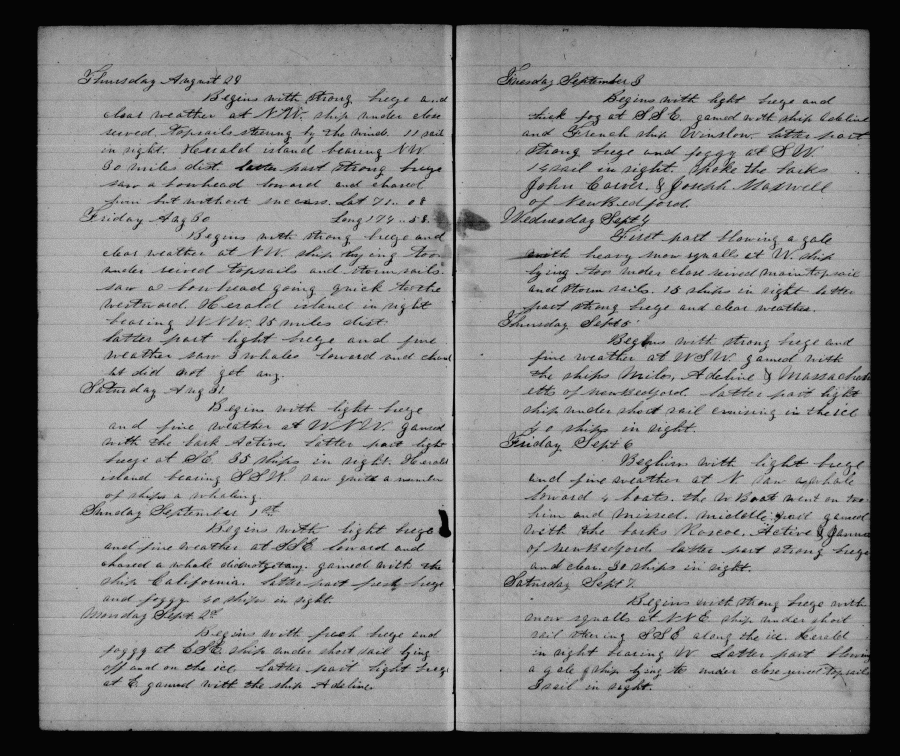 Thursday August 29
Begins with strong breze and
clear weather at N.W. ship under close
reived topsails stering by the wind. 11 sail
in sight. Herald island bearing N.W.
30 miles dist. latter part strong breze
saw a bowhead loward and chased
him but without success. Lat 71.. 08
Friday Aug 30 Long 174.. 58.
Begins with strong breze and
clear weather at N.W. ship lying too
under reived topsails and storm sails.
saw a bowhead going quick to the
westward. Herald island in sight
bearing W.N.W. 25 miles dist
latter part light breze and fine
weather saw 3 whales loward and chased
but did not get any.
Saturday Aug 31
Begins with light breze
and fine weather at W.N.W. gamed
with the bark Active. latter part light
breze at S.E. 35 ships in sight. Herald
island bearing S.S.W. saw quite a number
of ships a whaling.
Sunday September 1st
Begins with light breze
and fine weather at S.S.E. loward and
chased a whale did not get any. gamed with the
ship California. latter part breze
and foggy 40 ships in sight.
Monday Sept. 2d
Begins with fresh breze and
foggy at E.S.E. ship under short sail lying
off and on the ice. latter part light breze
at E. gamed with the ship Adeline
Tuesday September 3
Begins with light breze and
thick fog at S.S.E. gamed with ship Adeline
and French ship Winslow. latter part
strong breze and foggy at S.W.
14 sail in sight. spoke the barks
John Carver. & Joseph Maxwell
of New Bedford.
Wednesday Sept 4
First part blowing a gale
with heavy snow squalls at W. ship
lying too under close reived maintopsail
and storm sails. 15 ships in sight latter
part strong breze and clear weather.
Thursday Sept 5
Begins with strong breze and
fine weather at W.S.W. gamed with
the ships Milo, Adeline & Massachus
etts of New Bedford. latter part light
ship under short sail cruising in the ice
40 ships in sight.
Friday Sept 6
Beghins with light breze
and fine weather at N. saw a whale
loward 4 boats. the W Boat went on too
him and missed. middle part gamed
with the barks Roscoe, Active &
of New Bedford latter part strong breze
and clear. 30 ships in sight.
Saturday Sept 7.
Begins with strong breze with
snow squalls at N.N.E. ship under short
sail stering S.S.E. along the ice. Herald
in sight bearing W. latter part blowing
a gale ship lying to under close reived topsails
3 sail in sight.